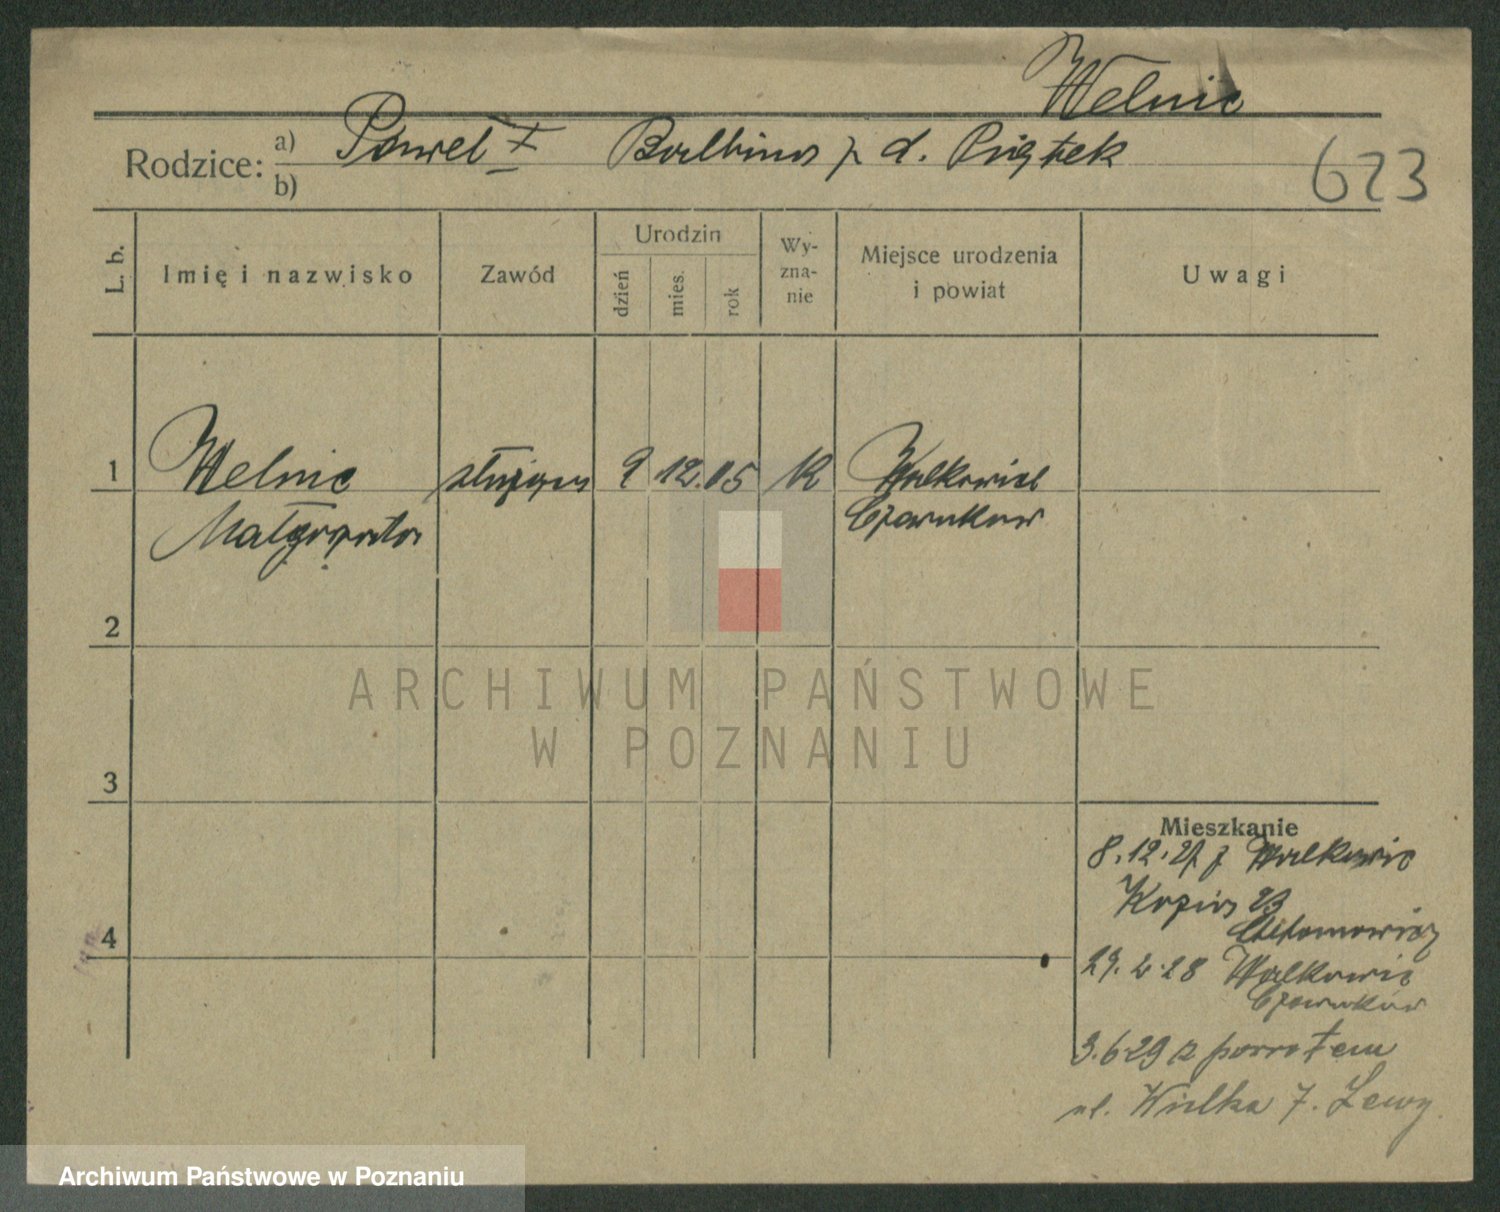 Welnic
Rodzice: a) Paweł + Balbina z d. Piątek
b)
623
L. b. Imię i nazwisko Zawód Urodzin dzień mies. rok Wy-zna-nie Miejsce urodzenia i powiat Uwagi
1 Welnic służąca 9 12. 05 K Walkowice
Małgorzata Czarnków
2
ARCHIWUM PAŃSTWOWE
W POZNANIU
3
Mieszkanie
8.12.27 z Walkowic
Kozia 23
4
29. 2. 28 Walkowic
Czarnków
3.6.29 z powrotem
ul. Wielka 7. Lewy
Archiwum Państwowe w Poznaniu